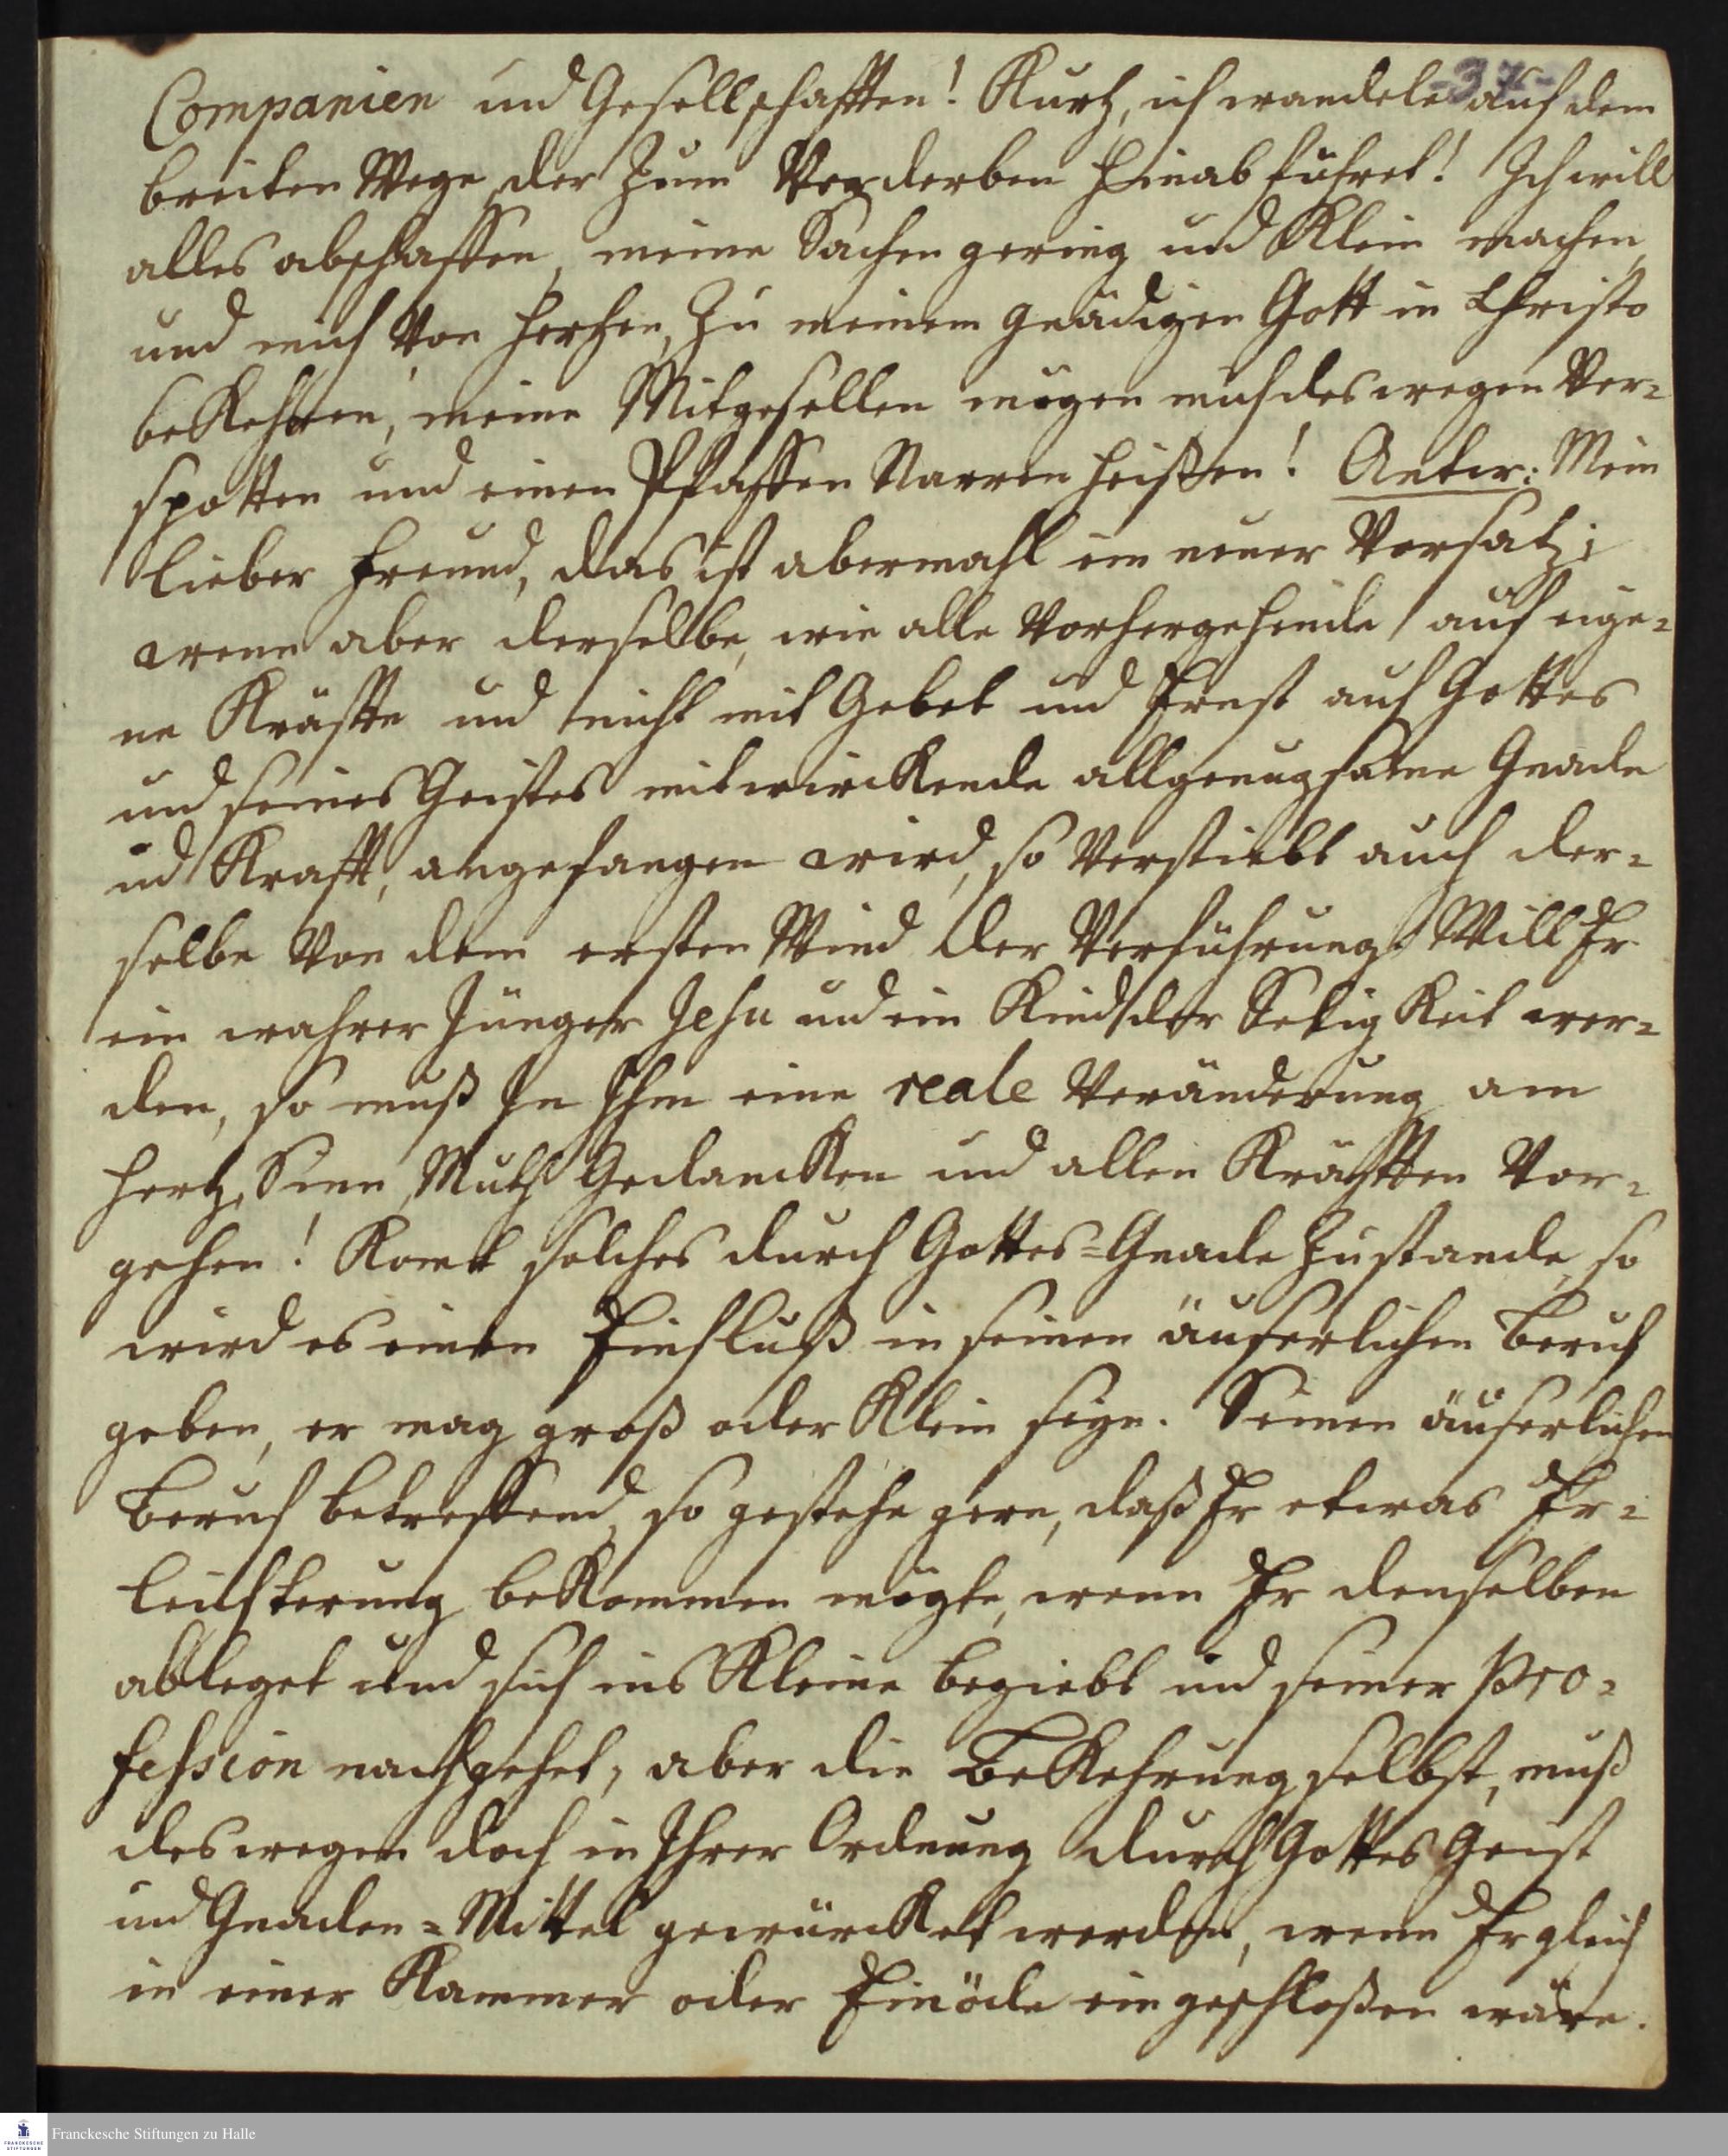 -37-
Companien und Gesellschafften! Kurtz, ich wandele auf dem
breiten Wege, der zum Verderben hinab führet! Ich will
alles abschaffen, meine Sachen gering und klein machen,
und mich von Hertzen, zu meinem gnädigen Gott in Christo
bekehren, meine Mitgesellen mögen mich deswegen ver-
spotten und einen Pfaffen Narren heißen! Antw: Mein
lieber Freund, das ist abermahl ein neuer Vorsatz;
wenn aber derselbe, wie alle vorhergehende, auf eige-
ne Kräffte und nicht mit Gebet und Ernst auf Gottes
und seines Geistes mitwirckende allgenugsame Gnade
und Krafft, angefangen wird, so verstiebt auch der-
selbe von dem ersten Wind der Verführung. Will Er
ein wahrer Jünger Jesu und ein Kind der Seligkeit wer-
den, so muß in Ihm eine reale Veränderung am
Hertz, Sinn, Muth Gedancken und allen Kräfften vor-
gehen! Komt solches durch Gottes-Gnade zustande, so
wird es einen Einfluß in seinen äuserlichen Beruf
geben, er mag groß oder klein seyn. Seinen äuserlichen
Beruf betreffend, so gestehe gern, daß Er etwas Er-
leichterung bekommen mögte, wenn Er denselben
ableget und sich ins Kleine begiebt und seiner Pro-
fession nachgehet, aber die Bekehrung selbst, muß
deswegen doch in Ihrer Ordnung durch Gottes Geist
und Gnaden-Mittel gewürcket werden, wenn Er gleich
in einer Kammer oder Einöde eingeschloßen wäre.
FRANCKESCHE STIFTUNGEN
Franckesche Stiftungen zu Halle